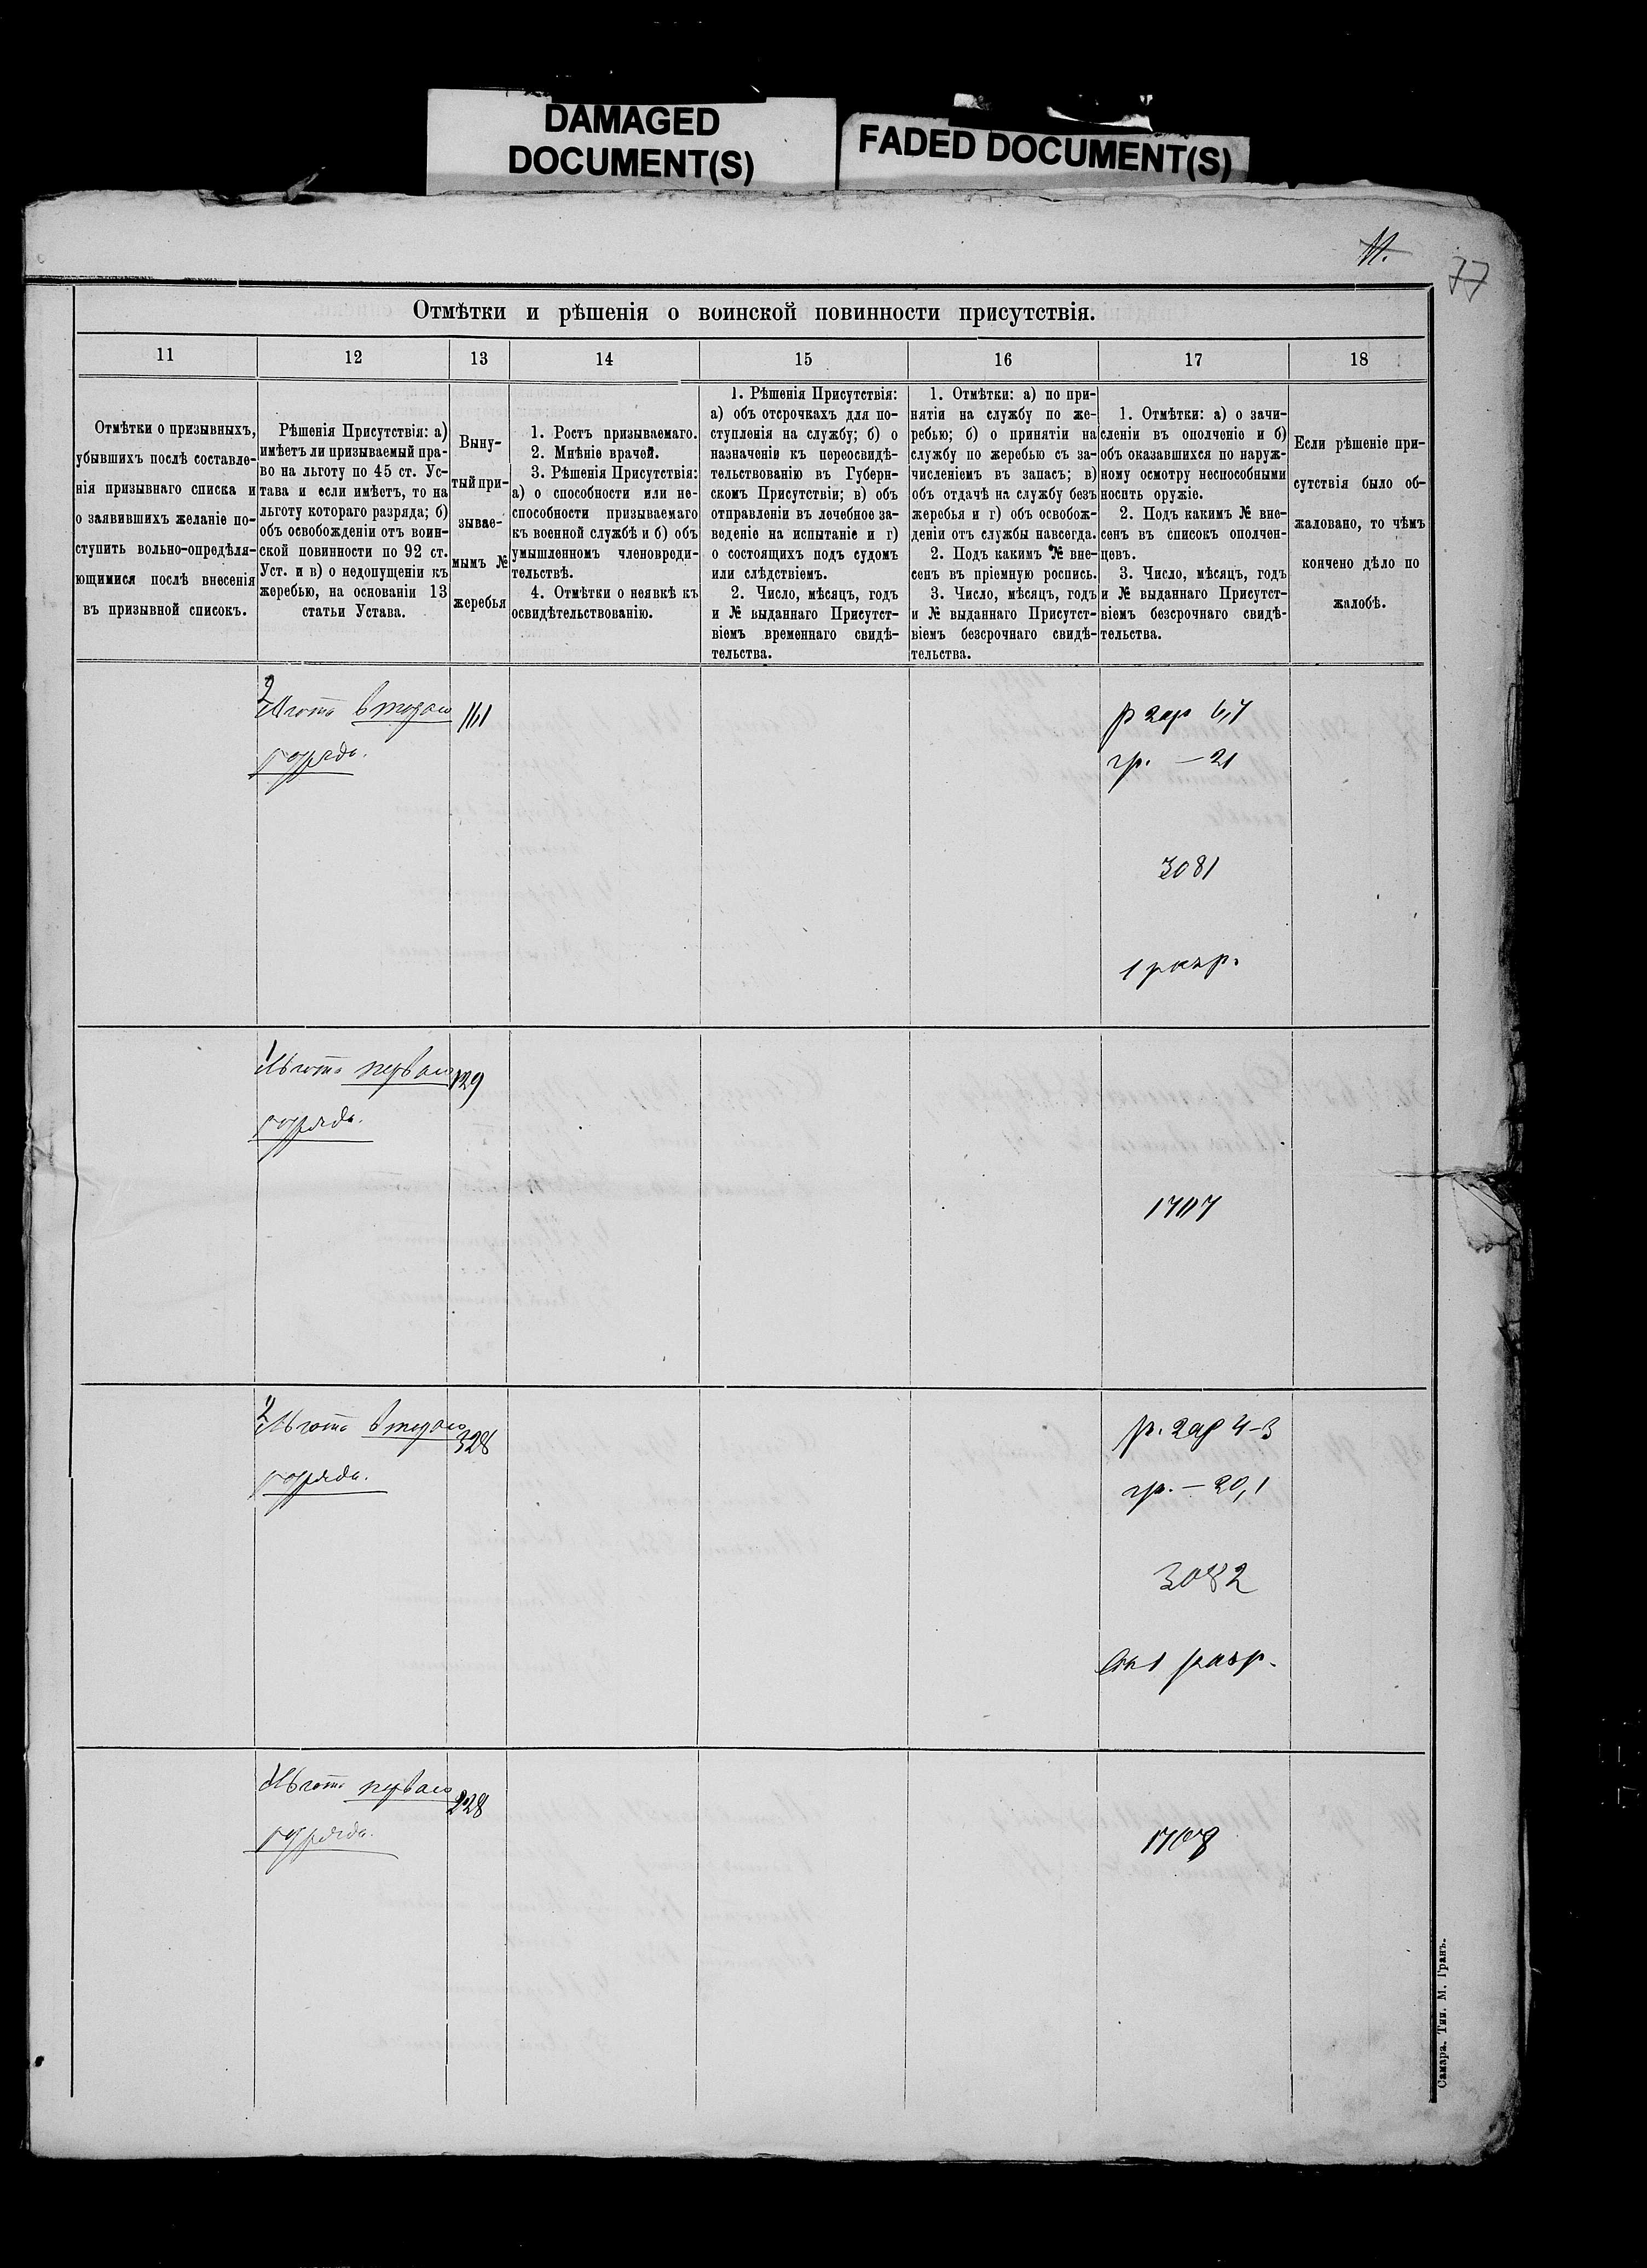 DAMAGED
DOCUMENT(S)
FADED DOCUMENT(S)
77
Отмѣтки и рѣшенія о воинской повинности присутствія.
11 12 13 14 15 16 17 18
Отмѣтки о призывныхъ,
убывшихъ послѣ составле-
нія призывнаго списка и
о заявившихъ желаніе по-
ступить вольно-опредѣля-
ющимися послѣ внесенія
въ призывной списокъ.
Рѣшенія Присутствія: а)
имѣетъ ли призываемый пра-
во на льготу по 45 ст. Ус-
тава и если имѣетъ, то на
льготу котораго разряда; б)
объ освобожденіи отъ воин-
ской повинности по 92 ст.
Уст. и в) о недопущеніи къ
жеребью, на основаніи 13
статьи Устава.
Выну-
тый при-
зывае-
мымъ №
жеребья
1. Ростъ призываемаго.
2. Мнѣніе врачей.
3. Рѣшенія Присутствія:
а) о способности или не-
способности призываемаго
къ военной службѣ и б) объ
умышленномъ членовреди-
тельствѣ.
4. Отмѣтки о неявкѣ къ
освидѣтельствованію.
1. Рѣшенія Присутствія:
а) объ отсрочкахъ для по-
ступленія на службу; б) о
назначеніи къ переосвидѣ-
тельствованію въ Губерн-
скомъ Присутствіи; в) объ
отправленіи въ лечебное за-
веденіе на испытаніе и г)
о состоящихъ подъ судомъ
или слѣдствіемъ.
2. Число, мѣсяцъ, годъ
и № выданнаго Присутст-
віемъ временнаго свидѣ-
тельства.
1. Отмѣтки: а) по при-
нятіи на службу по же-
ребью; б) о принятіи на
службу по жеребью съ за-
численіемъ въ запасъ; в)
объ отдачѣ на службу безъ
жеребья и г) объ освобож-
деніи отъ службы навсегда.
2. Подъ какимъ № вне-
сенъ въ пріемную роспись.
3. Число, мѣсяцъ, годъ
и № выданнаго Присутст-
віемъ безсрочнаго свидѣ-
тельства.
1. Отмѣтки: а) о зачи-
сленіи въ ополченіе и б)
объ оказавшихся по наруж-
ному осмотру неспособными
носить оружіе.
2. Подъ какимъ № вне-
сенъ въ списокъ ополчен-
цевъ.
3. Число, мѣсяцъ, годъ
и № выданнаго Присутст-
віемъ безсрочнаго свидѣ-
тельства.
Если рѣшеніе при-
сутствія было об-
жаловано, то чѣмъ
кончено дѣло по
жалобѣ.
2
Льгота втораго 161
разряда.
гр. — 21
3081
1 разр.
1
Льгота перваго 129
разряда.
1707
2
Льгота втораго 328
разряда.
гр. — 20,1
3082
1 разр.
Льгота перваго 228
разряда.
1708
Самара. Тип. М. Гранъ.